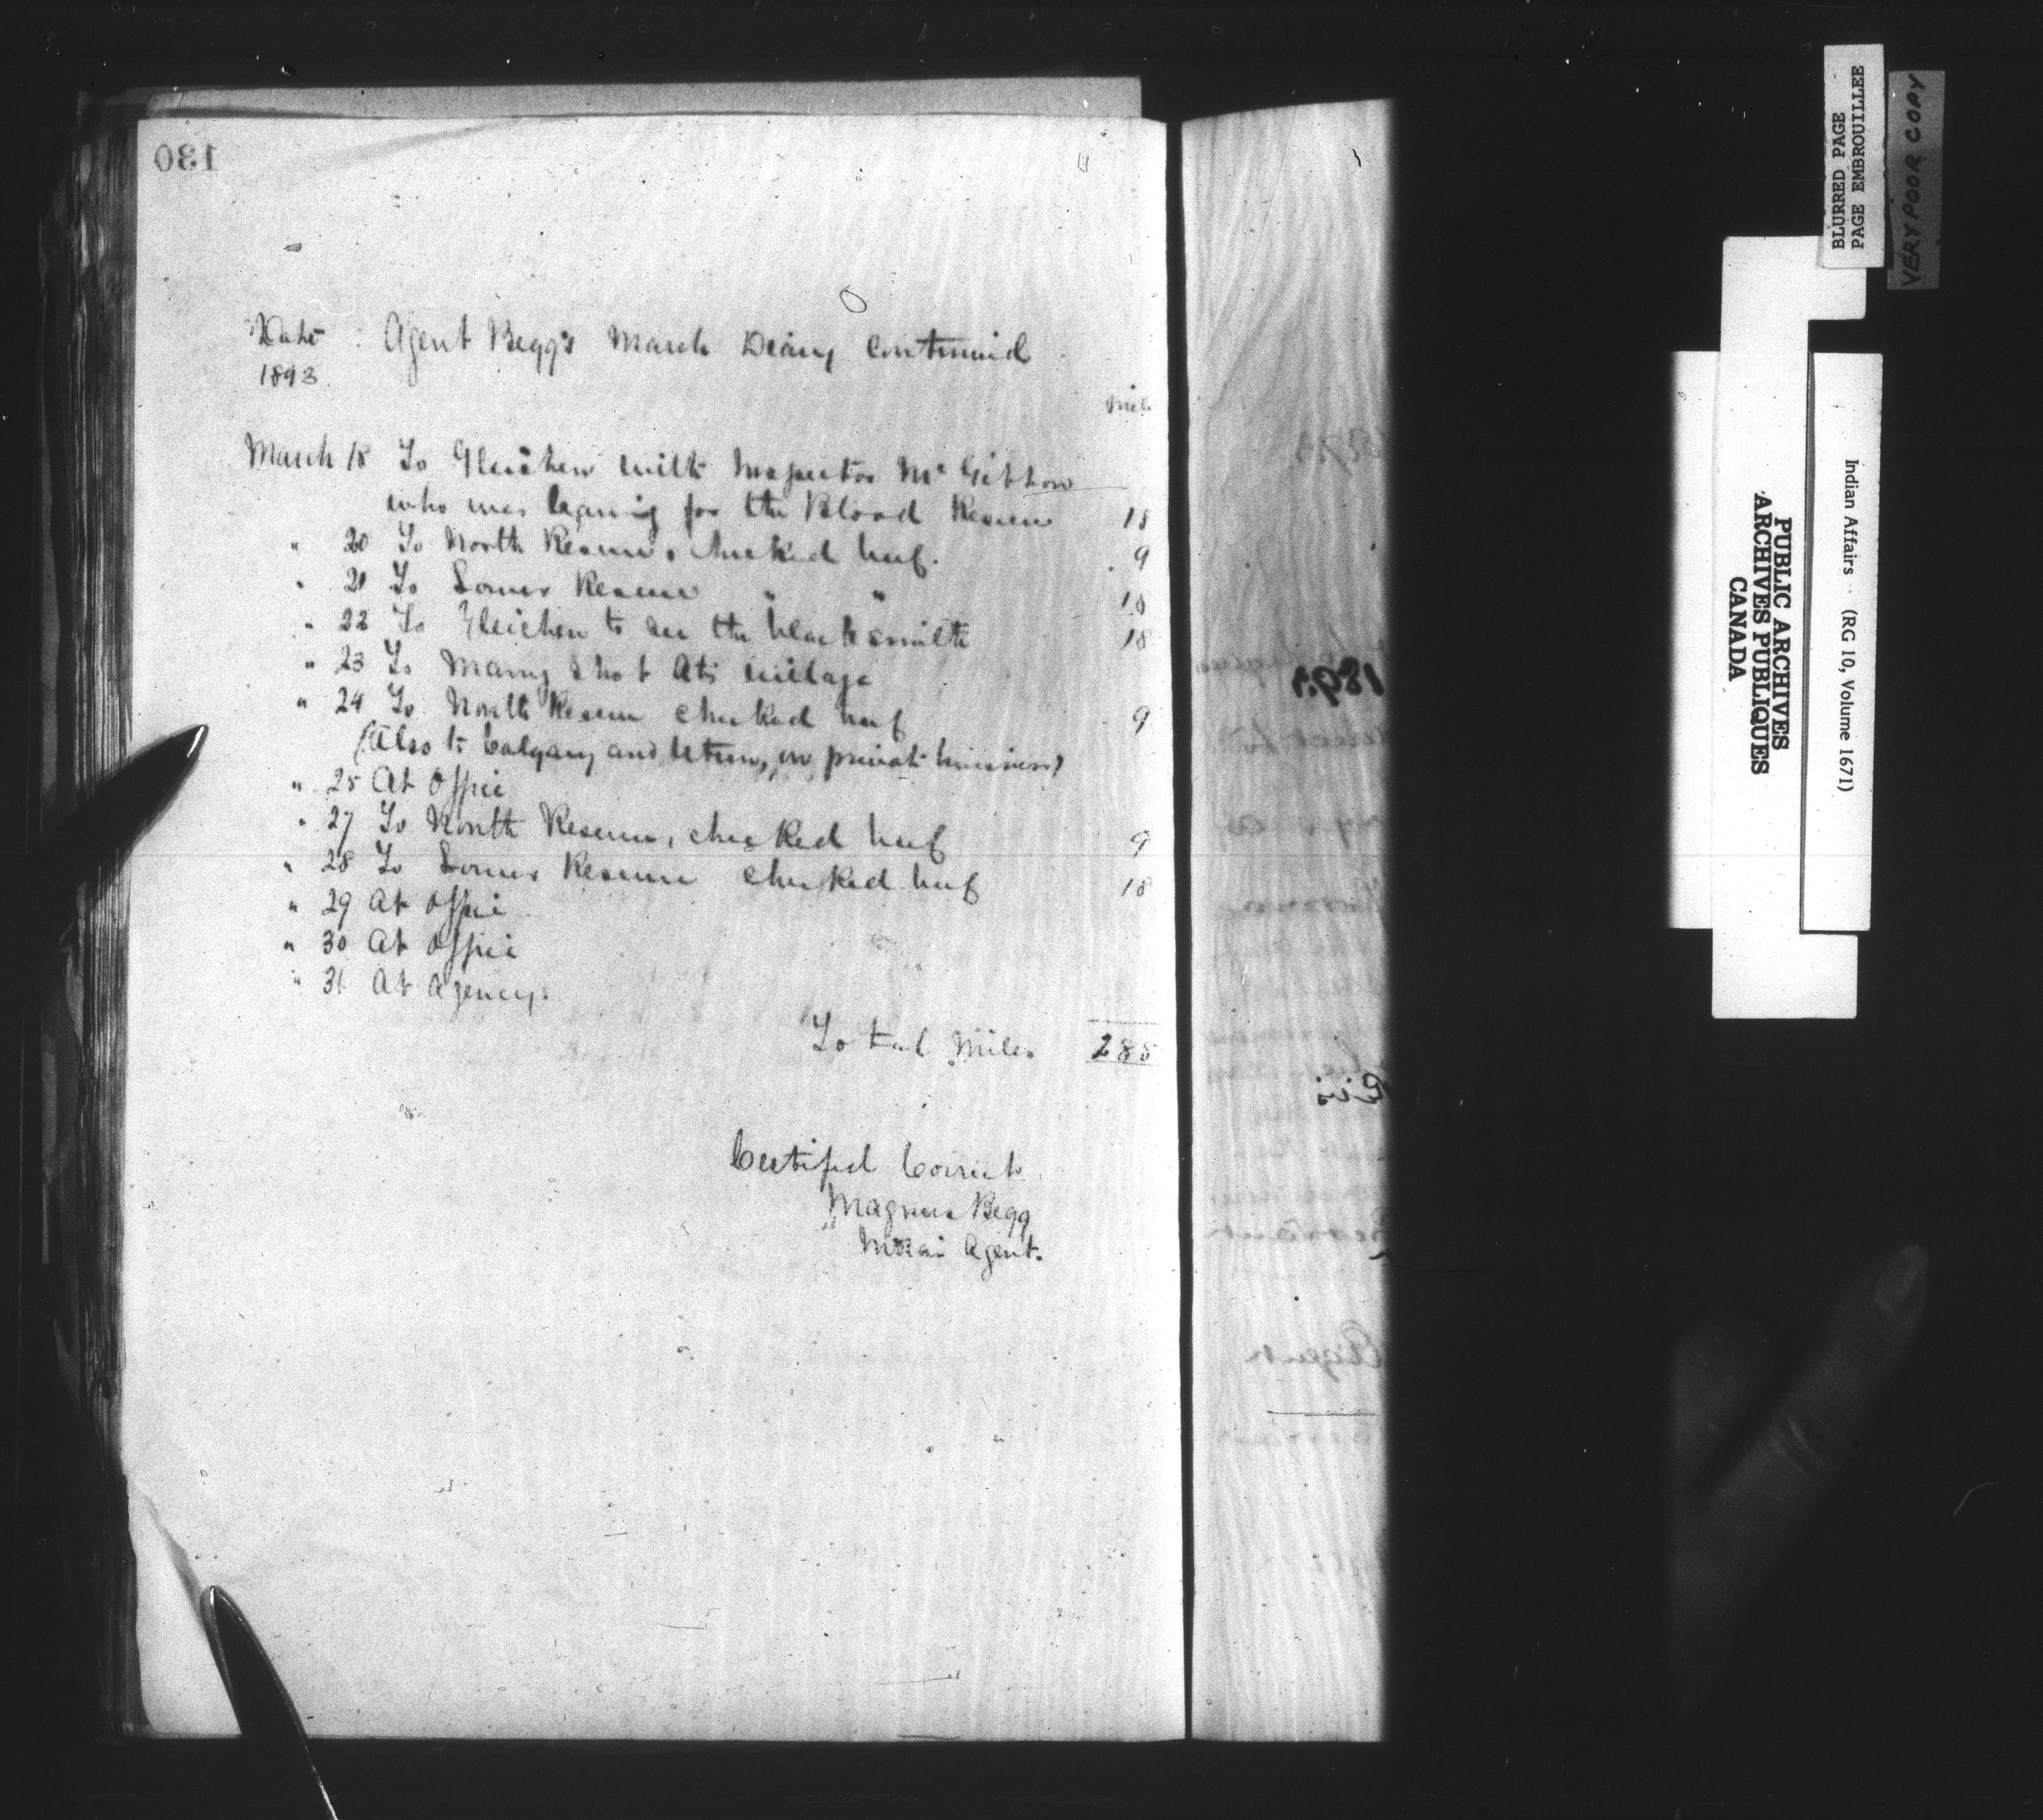 130
Date Agent Begg's March Diary Continued
1893
Mile
March 18 To Gleichen with Inspector Mc Gibbon
who was leaving for the Blood Reserve 18
" 20 To North Reserve, checked beef. 9
" 21 To Lower Reserve " " 18
" 22 To Gleichen to see the blacksmith 18
" 23 To Many Shot Ats village
" 24 To North Reserve checked beef 9
(Also to Calgary and return, on private business)
" 25 At Office
" 27 To North Reserve, checked beef 9
" 28 To Lower Reserve checked beef 18
" 29 At Office
" 30 At Office
" 31 At Agency.
Total Miles 285
Certified Correct
Magnus Begg
Indian Agent.
1893
Agent
BLURRED PAGE
PAGE EMBROUILLEE
VERY POOR COPY
PUBLIC ARCHIVES
ARCHIVES PUBLIQUES
CANADA
Indian Affairs (RG 10, Volume 1671)